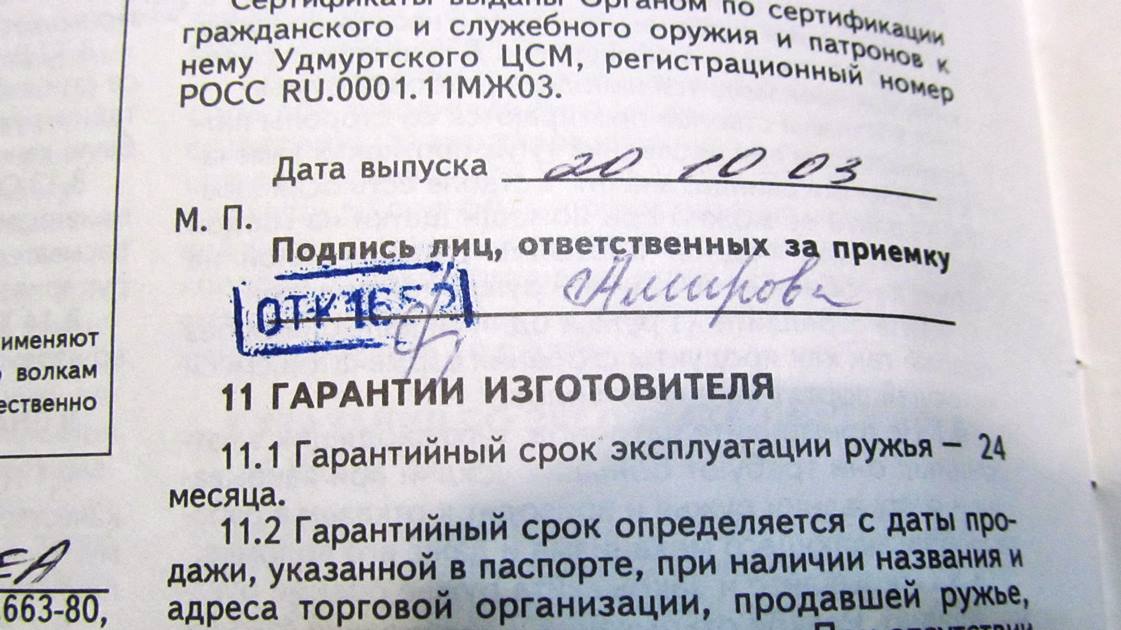 Сертификаты выданы Органом по сертификации
гражданского и служебного оружия и патронов к
нему Удмуртского ЦСМ, регистрационный номер
РОСС RU.0001.11МЖ03.
Дата выпуска 20 10 03
М. П.
Подпись лиц, ответственных за приемку
ОТК 165
11 ГАРАНТИИ ИЗГОТОВИТЕЛЯ
11.1 Гарантийный срок эксплуатации ружья – 24
месяца.
11.2 Гарантийный срок определяется с даты про-
дажи, указанной в паспорте, при наличии названия и
адреса торговой организации, продавшей ружье,
именяют
волкам
ественно
ЕА
663-80,